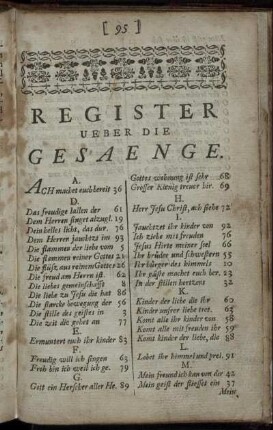 [ 95 ]
REGISTER
UEBER DIE
GESAENGE.
A.
ACH machet euch bereit 36
D.
Das freudige hallen der 61
Dem Herren singet alzugl. 19
Dein helles licht, das dur. 76
Dem Herren jauchzt im 93
Die stammen der liebe vom 5
Die stammen reiner Gottes 21
Die süsse, aus reinem Gottes 26
Die freud am Herrn ist 63
Die liebes gemeinschafft
Die liebe zu Jesu die hat 86
Die starcke bewegung der 56
Die stille des geistes in 3
Die zeit die gehet an 77
E.
Ermuntert euch ihr kinder 83
F.
Freudig will ich singen 63
Froh bin ich weil ich ge. 79
G.
Gott ein Herscher aller He. 89
Gottes wohnung ist sehr 68
Grosser König treuer hir. 69
H.
Herr Jesu Christ, ach siehe 32
I.
Jauchzet ihr kinder von 92
Ich ziehe mit freuden 76
Jesus Hirte meiner seel 66
Ihr brüder und schwestern 53
Ihr bürger des himmels 10
Ihr gäste machet euch ber. 23
In der stillen hertzens 32
K.
Kinder der liebe die ihr 60
Kinder unser liebe treu 62
Komt alle ihr kinder von 58
Komt alle mit freuden ihr 59
Komt kinder der liebe, die 38
L.
Lobet ihr himmel und prei. 91
M.
Mein freund ich kan von dir 42
Mein geist der 37
Mein